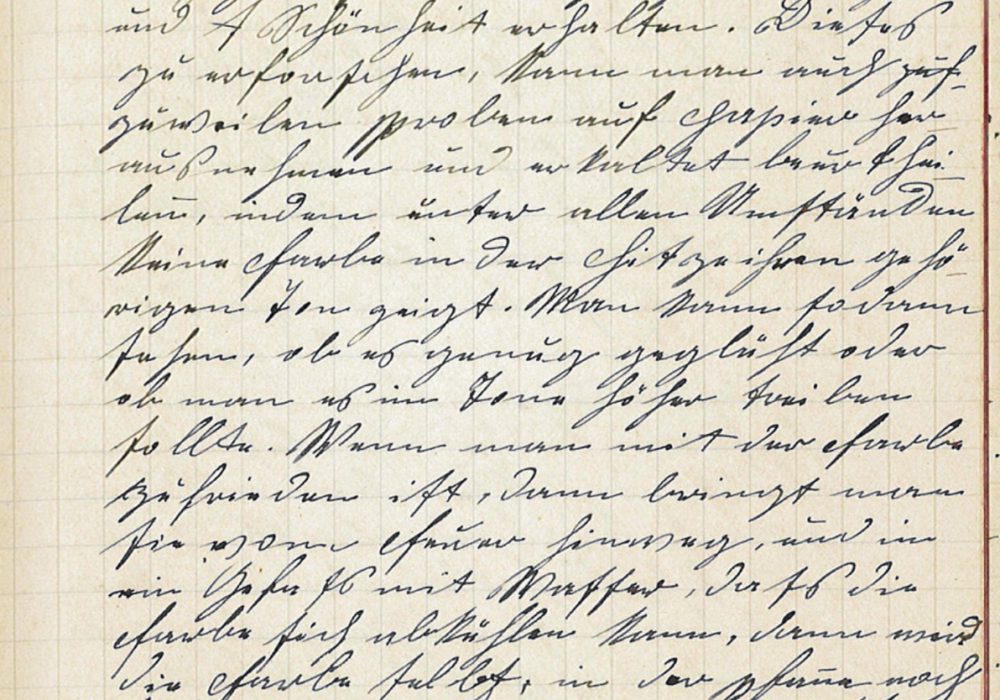 und Schönheit erhalten. Dieses
zu erforschen, kann man auch
zuweilen Proben auf Papier her
ausnehmen und erkaltet beurthei-
len, indem unter allen Umständen
keine Farbe in der Hitze ihren gehö-
rigen Ton zeigt. Man kann sodann
sehen, ob es genug geglüht oder
ob man es im Tone höher treiben
sollte. Wenn man mit der Farbe
zufrieden ist, dann bringt man
sie vom Feuer hinweg, und in
ein Gefäß mit Wasser, daß die
Farbe sich abkühlen kann, dann wird
die Farbe selbst, in der Pfanne noch